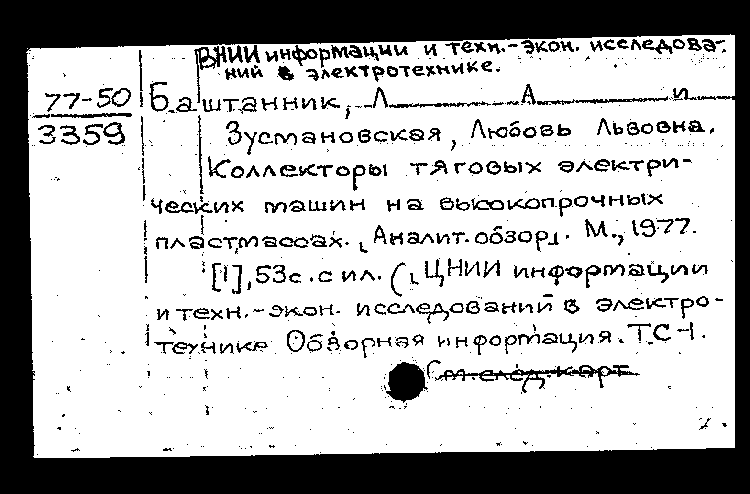 ВНИИ информации и техн.-экон. исследова-
ний в электротехнике.
77-50
3359
Баштанник, Л____ А____ и
Зусмановская, Любовь Львовна.
Коллекторы тяговых электри-
ческих машин на высокопрочных
пластмассах. [Аналит. обзор]. М., 1977.
[1], 53 с. с ил. ([ЦНИИ информации
и техн.-экон. исследований в электро-
технике Обзорная информация. ТС-1.
См. след. карт